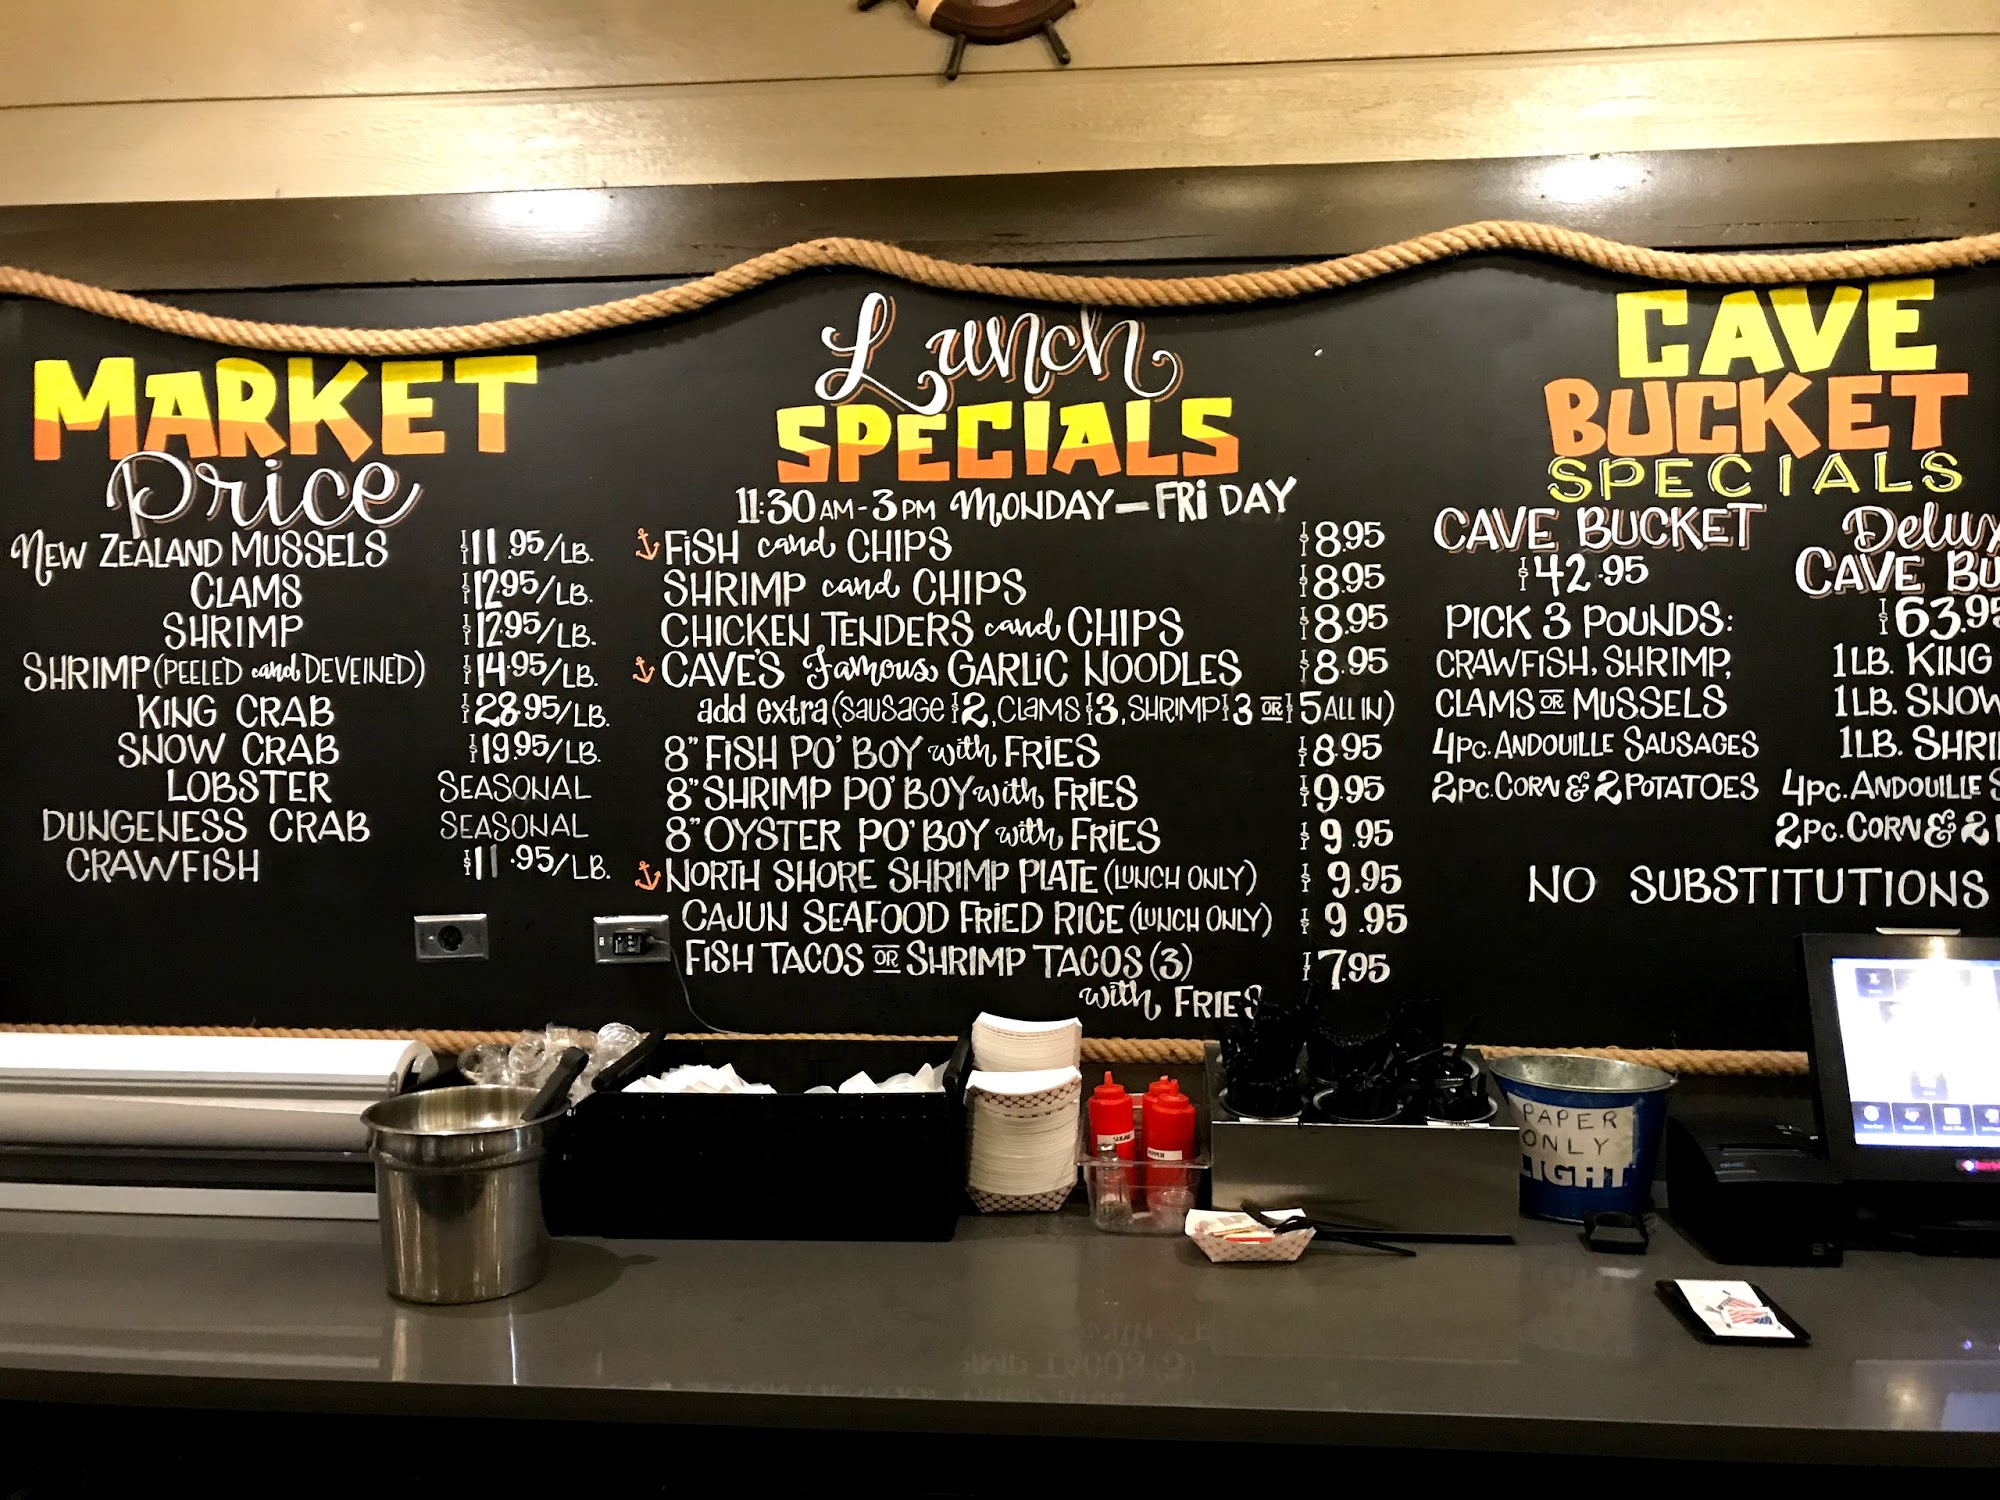 MARKET
Price
NEW ZEALAND MUSSELS $11.95/LB.
CLAMS $12.95/LB.
SHRIMP $12.95/LB.
SHRIMP (PEELED and DEVEINED) $14.95/LB.
KING CRAB $28.95/LB.
SNOW CRAB $19.95/LB.
LOBSTER SEASONAL
DUNGENESS CRAB SEASONAL
CRAWFISH $11.95/LB.
Lunch
SPECIALS
11:30 AM - 3 PM MONDAY - FRIDAY
FISH and CHIPS $8.95
SHRIMP and CHIPS $8.95
CHICKEN TENDERS and CHIPS $8.95
CAVE'S Famous GARLIC NOODLES $8.95
add extra (SAUSAGE $2, CLAMS $3, SHRIMP $3 OR $5 ALL IN)
8" FISH PO' BOY with FRIES $8.95
8" SHRIMP PO' BOY with FRIES $9.95
8" OYSTER PO' BOY with FRIES $9.95
NORTH SHORE SHRIMP PLATE (LUNCH ONLY) $9.95
CAJUN SEAFOOD FRIED RICE (LUNCH ONLY) $9.95
FISH TACOS OR SHRIMP TACOS (3) $7.95
with FRIES
CAVE
BUCKET
SPECIALS
CAVE BUCKET
$42.95
PICK 3 POUNDS:
CRAWFISH, SHRIMP,
CLAMS OR MUSSELS
4PC. ANDOUILLE SAUSAGES
2PC. CORN & 2 POTATOES
Delux
CAVE BU
$63.95
1LB. KING
1LB. SNOW
1LB. SHRI
4PC. ANDOUILLE S
2PC. CORN & 2
NO SUBSTITUTIONS
PAPER
ONLY
LIGHT